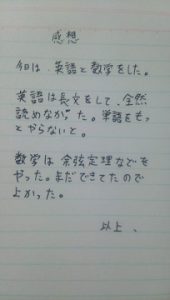 感想
今日は、英語と数学をした。
英語は長文をして、全然
読めなかった。単語をもっ
とやらないと。
数学は余弦定理などを
やった。まだできてたので
よかった。
以上、